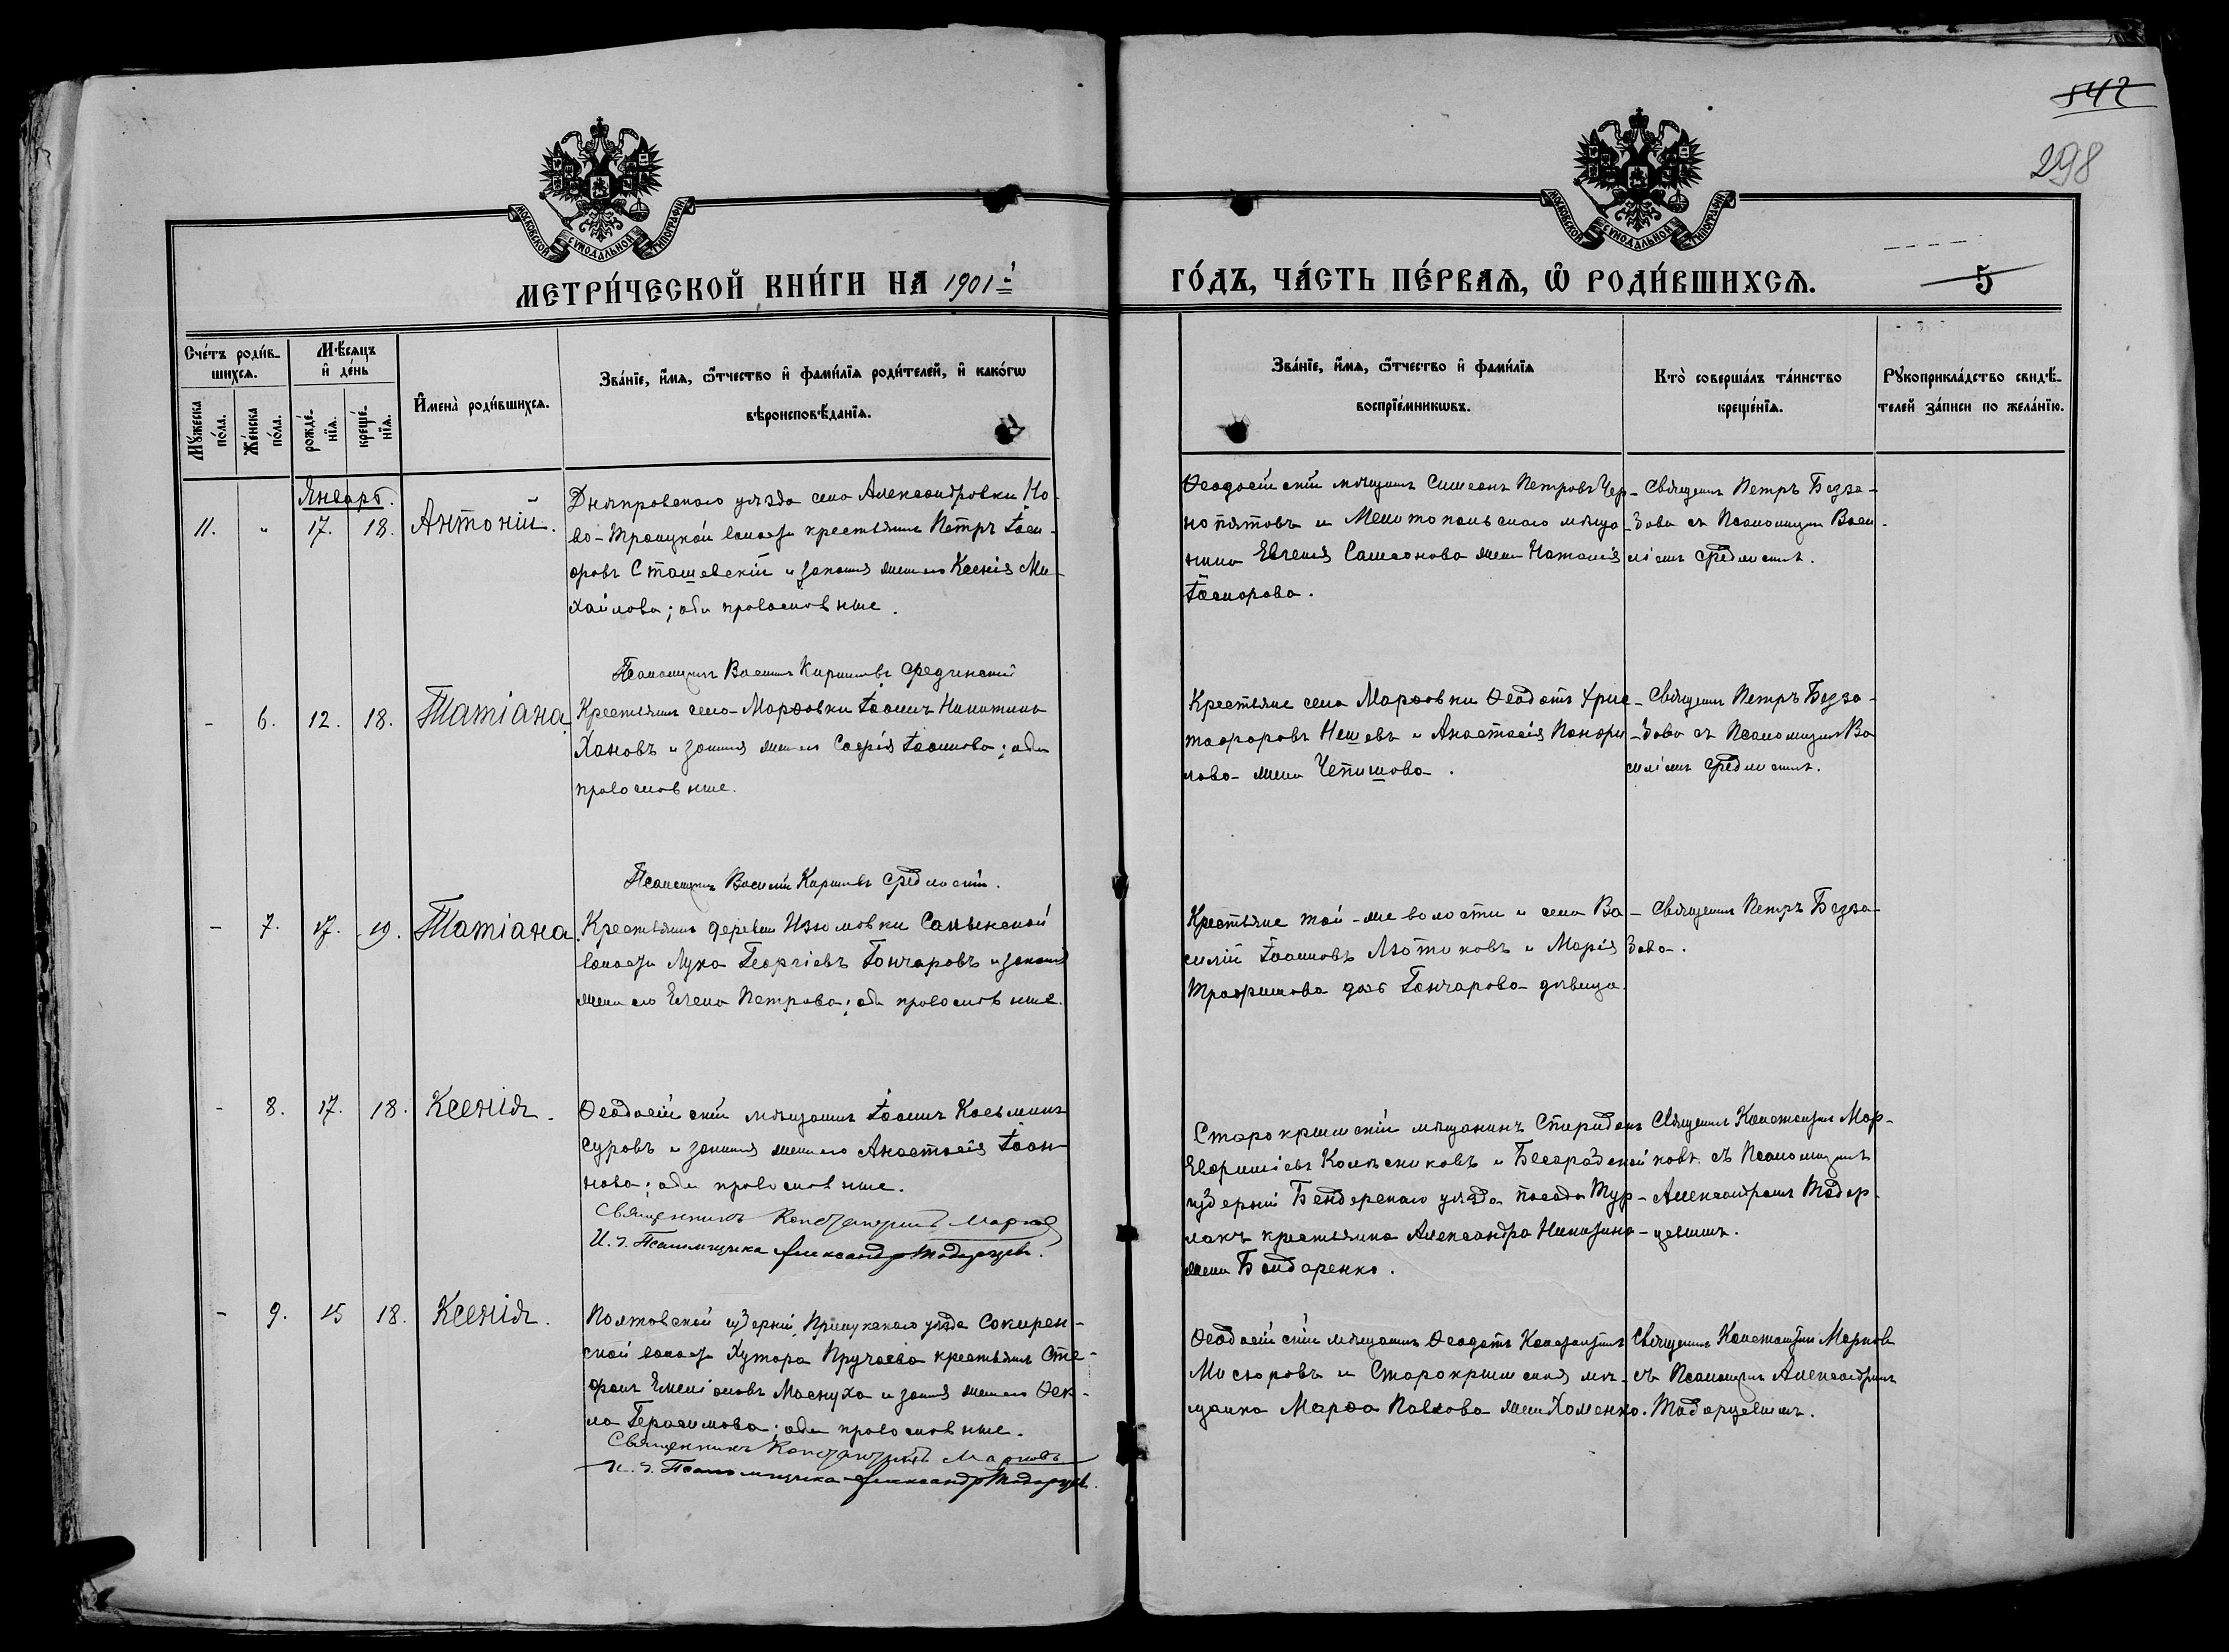 542
298
МОСКОВСКОЙ СѴНОДАЛЬНОЙ ТИПОГРАФІИ
МОСКОВСКОЙ СѴНОДАЛЬНОЙ ТИПОГРАФІИ
МЕТРИ́ЧЕСКОЙ КНИ́ГИ НА 1901й
ГО́ДЪ, ЧА́СТЬ ПЕ́РВАѦ, Ѡ҆ РОДИ́ВШИХСѦ.
5
Сче́тъ роди́в-
шихсѧ.
Мѣ́сѧцъ
и҆ де́нь
И҆мена̀ роди́вшихсѧ.
Зва́нїе, и҆́мѧ, ѻ҆́тчество и҆ фами́лїѧ роди́телей, и҆ како́гѡ
вѣроисповѣ́данїѧ.
Мꙋ́жеска
по́ла.
Же́нска
по́ла.
рожде́-
нїѧ.
креще́-
нїѧ.
Зва́нїе, и҆́мѧ, ѻ҆́тчество и҆ фами́лїѧ
воспрїе́мникѡвъ.
Кто̀ соверша́лъ та́инство
креще́нїѧ.
Рꙋкоприкла́дство свидѣ́-
телей за́писи по жела́нїю.
Январь.
11. " 17. 18. Антоній.
Днѣпровскаго уѣзда села Александровки Но-
во-Троицкой волости крестьянинъ Петръ Іоси-
фовъ Сташевскій и законная жена его Ксенія Ми-
хаилова; оба православные.
Ѳеодосійскій мѣщанинъ Симеонъ Петровъ Чер-
нопятовъ и Мелитопольскаго мѣща-
нина Евгенія Самсонова жена Наталія
Священникъ Петръ Безза-
бава съ Псаломщикомъ Васи-
ліемъ
Псаломщикъ Василій Кирилловъ
- 6. 12. 18. Татіана
Крестьянинъ села Марѳовки Іоаннъ Никитинъ
Хановъ и законная жена его Софія Іоаннова; оба
православные.
Крестьяне села Марѳовки Ѳеодотъ Хрис-
тофоровъ Нешевъ и Анастасія
жена
Священникъ Петръ Безза-
бава съ Псаломщикомъ Ва
силіемъ
Псаломщикъ Василій Кирилловъ
- 7. 17. 19. Татіана.
Крестьянинъ деревни Изюмовки Салынской
волости Лука Георгіевъ Гончаровъ и законная
жена его Елена Петрова; оба православные.
Крестьяне той-же волости и села Ва-
силій Іоанновъ Лютиковъ и Марія
Трофимова дочь Гончарова девица.
Священникъ Петръ Безза-
бава.
- 8. 17. 18. Ксенія.
Ѳеодосійскій мѣщанинъ Іоаннъ Косьминъ
Суровъ и законная жена его Анастасія Іоан-
нова; оба православные.
Священникъ Константинъ Марковъ
И. д. Псаломщика Александръ Тодорцевъ.
Старокрымскій мѣщанинъ Спиридонъ
Евфиміевъ Колѣсниковъ и Бессарабской
губерніи Бендерскаго уѣзда посада Тур-
лакъ крестьянина Александра Никитина
жена Бондаренко.
Священникъ Константинъ Мар-
ковъ съ Псаломщикомъ
Александромъ Тодор-
цевымъ.
- 9. 15 18. Ксенія.
Полтавской губерніи, Прилукскаго уѣзда Сокирен-
ской волости Хутора Пручаева крестьянинъ Сте-
фанъ Емеліановъ Маснуха и законная жена его Ѳек-
ла Герасимова; оба православные.
Священникъ Константинъ Марковъ
И. д. Псаломщика Александръ Тодорцевъ.
Ѳеодосійскій мѣщанинъ Ѳеодотъ Константиновъ
Мисюровъ и Старокрымская мѣ-
щанка Марѳа Павлова жена Хоменко.
Священникъ Константинъ Марковъ
съ Псаломщикомъ Александромъ
Тодорцевымъ.